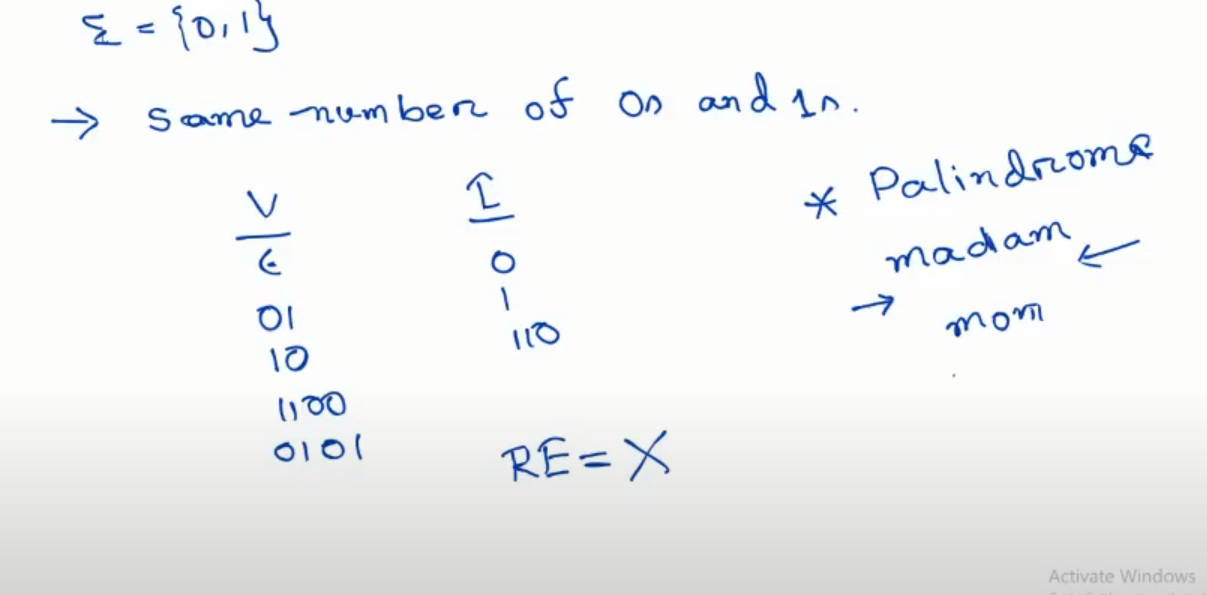 Σ = {0,1}
→ same number of 0s and 1s.
V I
ϵ 0
01 1
10 110
1100
0101
RE = X
* Palindrome
madam ←
→ mom
Activate Windows